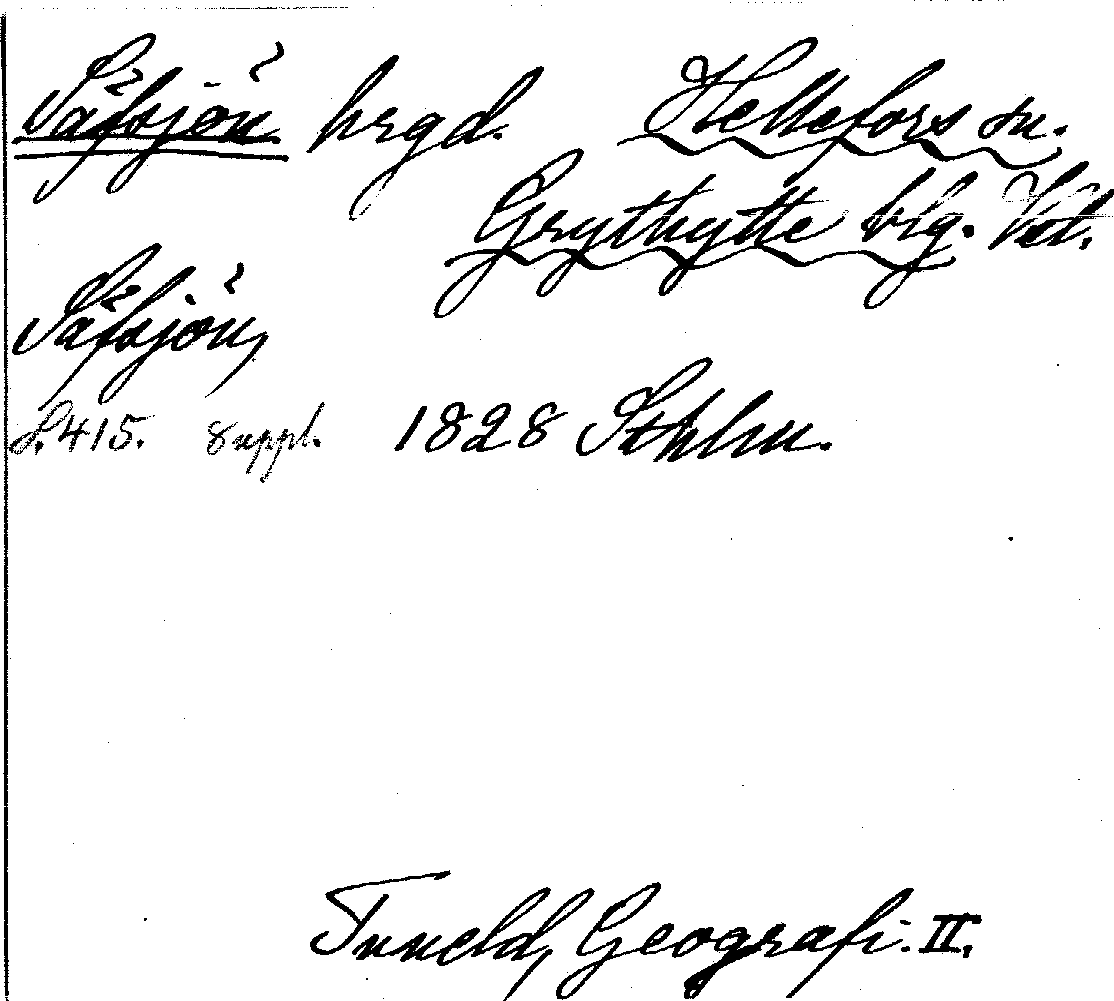 Säfsjön hrgd. Hellefors sn.
Grythytte blg. Vstl.
Säfsjön,
S. 415. Suppl. 1828 Sthlm.
Tuneld, Geografi. II.